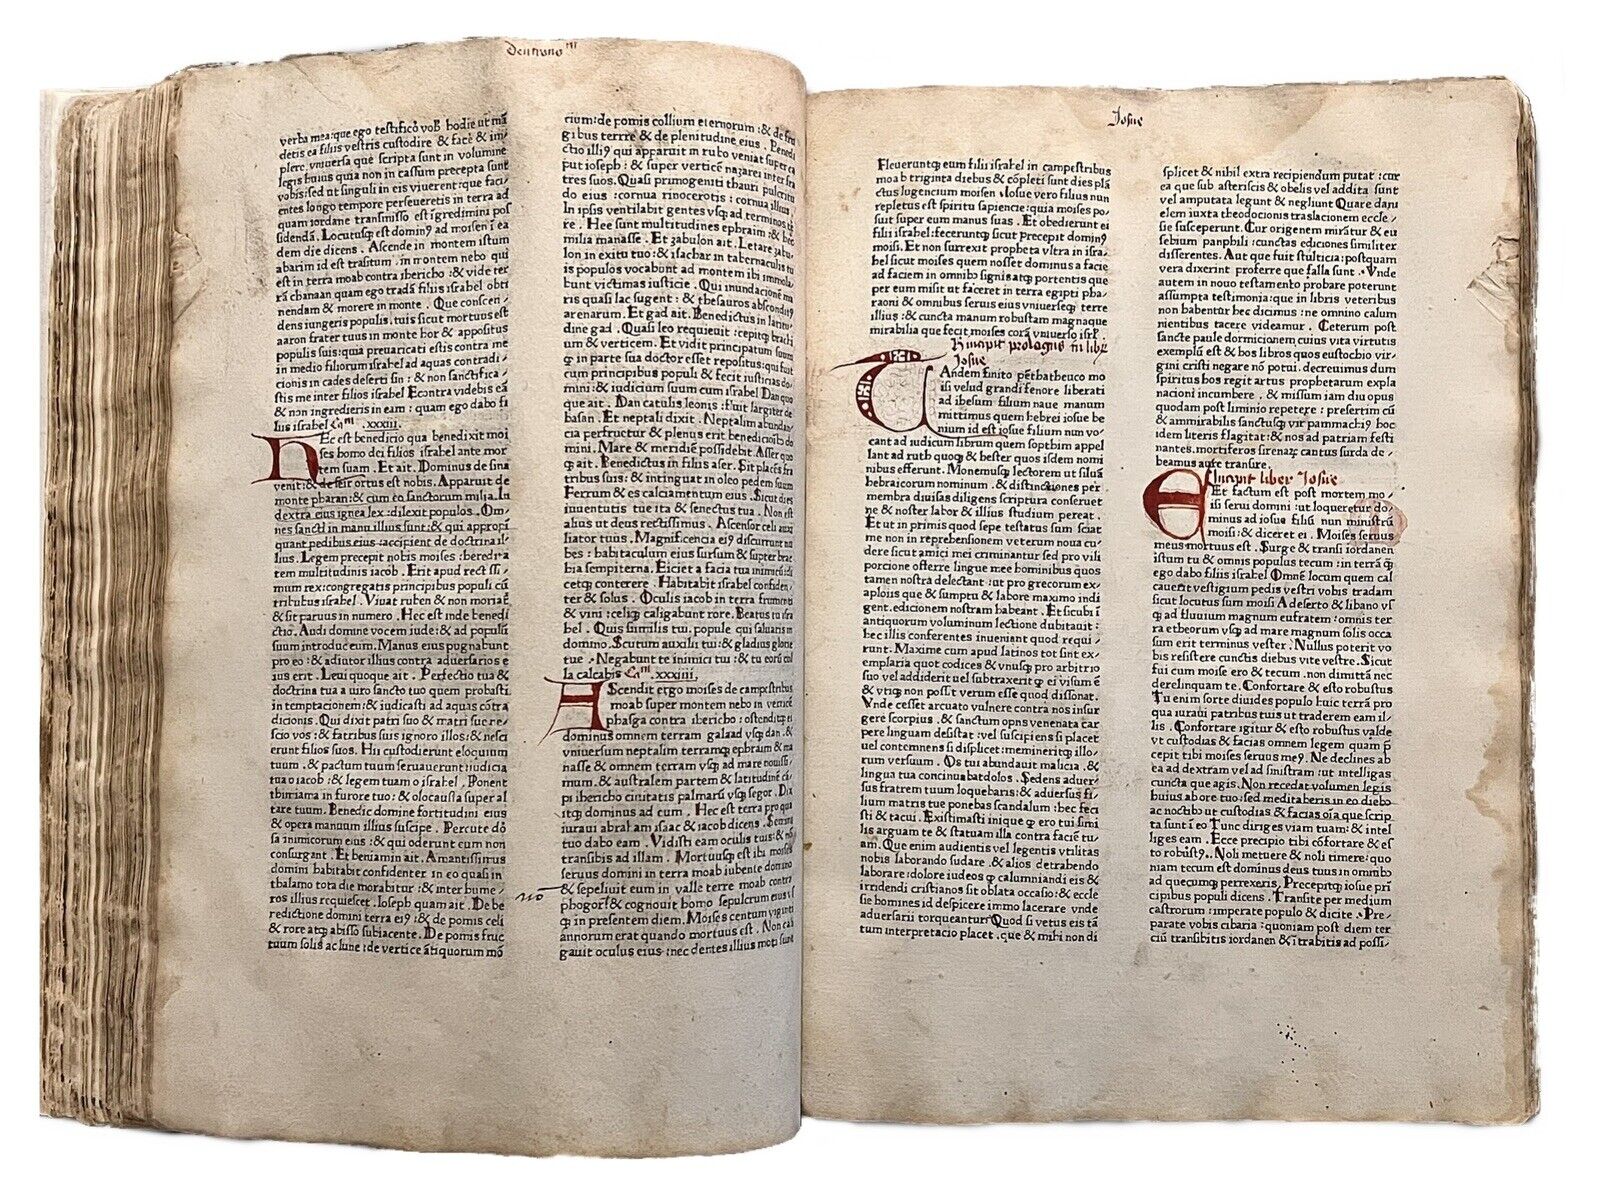 Deutrono
verba mea: que ego testifico vob hodie ut mā
detis ea filiis vestris custodire & facē & im/
plere. vniuersa que scripta sunt in volumine
legis huius quia non in cassum precepta sunt
vobis: sed ut singuli in eis viuerent: que faci/
entes longo tempore perseueretis in terra ad
quam iordane transmisso est īgredimini pos
sidendā. Locutusqȝ est dominꝰ ad moisen ī ea
dem die dicens. Ascende in montem istum
abarim id est trāsitum. in montem nebo qui
est in terra moab contra ihericho: & vide ter
rā chanaan quam ego tradā filiis israhel obti
nendam & morere in monte. Que conscen/
dens iungeris populis. tuis sicut mortuus est
aaron frater tuus in monte hor & appositus
populis suis: quia preuaricati estis contra me
in medio filiorum israhel ad aquas contradi/
cionis in cades deserti sin: & non sanctifica/
stis me inter filios israhel Econtra videbis eā
& non ingredieris in eam: quam ego dabo fi
liis israhel Cam .xxxiii.
HEc est benedicio qua benedixit moi
ses homo dei filios israhel ante mor
tem suam. Et ait. Dominus de sina
venit: & de seir ortus est nobis. Apparuit de
monte pharan: & cum eo sanctorum milia. In
dextra eius ignea lex: dilexit populos. Om/
nes sancti in manu illius sunt: & qui appropī
quant pedibus eius: accipient de doctrina il/
lius. Legem precepit nobis moises: heredita
tem multitudinis iacob. Erit apud rectissi/
mum rex: congregatis principibus populi cū
tribubus israhel. Viuat ruben & non moriať
& sit paruus in numero. Hec est iude benedi
ctio. Audi domine vocem iude: & ad populū
suum introduc eum. Manus eius pugnabunt
pro eo: & adiutor illius contra aduersarios e
ius erit. Leui quoque ait. Perfectio tua &
doctrina tua a uiro sancto tuo quem probasti
in temptacionem: & iudicasti ad aquas cōtra
dicionis. Qui dixit patri suo & matri sue ne/
scio vos: & fratribus suis ignoro illos: & nesci
erunt filios suos. Hii custodierunt eloquium
tuum. & pactum tuum seruauerunt iudicia
tua o iacob: & legem tuam o israhel. Ponent
thimiama in furore tuo: & olocausta super al
tare tuum. Benedic domine fortitudini eius
& opera manuum illius suscipe. Percute dōr
sa inimicorum eius: & qui oderunt eum non
consurgant. Et beniamin ait. Amantissimus
domini habitabit confidenter in eo quasi in
thalamo tota die morabitur: & inter hume/
ros illius requiescet. Ioseph quam ait. De be
nedictione domini terra eiꝰ: & de pomis celi
& rore atqȝ abisso subiacente. De pomis fruc
tuum solis ac lune: de vertice ātiquorum mō
cium: de pomis collium eternorum: & de fru
gibus terre & de plenitudine eius. Benedi
ctio illiꝰ qui apparuit in rubo veniat super ca
put ioseph: & super verticē nazarei inter fra
tres suos. Quasi primogeniti thauri pulcritu
do eius: cornua rinocerotis: cornua illius.
In ipsis ventilabit gentes vsqȝ ad terminos te
re. Hee sunt multitudines ephraim: & hec
milia manasse. Et zabulon ait. Letare zabu/
lon in exitu tuo: & isachar in tabernaculis tu
is populos vocabunt ad montem ibi immola/
bunt victimas iusticie. Qui inundacionē ma
ris quasi lac sugent: & thesauros absconditꝰ
arenarum. Et gad ait. Benedictus in latitu/
dine gad. Quasi leo requieuit: cepitqȝ brachi
um & verticem. Et vidit principatum suum
qȝ in parte sua doctor esset repositus: qui fuit
cum principibus populi & fecit iusticias do/
mini: & iudicium suum cum israhel. Dan quo
que ait. Dan catulus leonis: fluit largiter de
basan. Et neptali dixit. Neptalim abundan/
cia perfruetur & plenus erit benedictiōb do
mini. Mare & meridiē possidebit. Asser quo
qȝ ait. Benedictus in filiis aser. Sit placēs fra
tribus suis: & intinguat in oleo pedem suum
Ferrum & es calciamentum eius. Sicut dies
iuuentutis tue ita & senectus tua. Non est
alius ut deus rectissimus. Ascensor celi auxi
liator tuus. Magnificencia eiꝰ discurrunt nu
bes: habitaculum eius sursum & subter brac
hia sempiterna. Eiciet a facia tua inimicū: di
cetqȝ conterere. Habitabit israhel confiden/
ter & solus. Oculis iacob in terra frumenti
& vini: celiqȝ caligabunt rore. Beatus tu isra
hel. Quis similis tui. popule qui saluaris in
domino. Scutum auxilii tui: & gladius glorie
tue. Negabunt te inimici tui: & tu eorū col
la calcabis Cam .xxxiiii.
AScendit ergo moises de campestribus
moab super montem nebo in verticē
phasga contra ihericho: ostenditqȝ ei
dominus omnem terram galaad vsqȝ dan. &
vniuersum neptalim terramqȝ ephraim & ma
nasse & omnem terram vsqȝ ad mare nouissi
mum: & australem partem & latitudinē cā/
pi ihericho ciuitatis palmarū vsqȝ segor. Dix
itqȝ dominus ad eum. Hec est terra pro qua
iuraui abraham isaac & iacob dicens. Semini
tuo dabo eam. Vidisti eam oculis tuis: & nō
transibis ad illam. Mortuusqȝ est ibi moises
seruus domini in terra moab iubente domino
& sepeliuit eum in valle terre moab contra
phogor: & cognouit homo sepulcrum eius vs
qȝ in presentem diem. Moises centum viginti
annorum erat quando mortuus est. Non ca
gauit oculus eius: nec dentes illius moti sunt
nō
Iosue
Fleueruntqȝ eum filii israhel in campestribus
moab triginta diebus & cōpleti sunt dies plā
ctus lugencium moisen. Iosue vero filius nun
repletus est spiritu sapiencie: quia moises po
suit super eum manus suas. Et obedierunt ei
filii israhel: feceruntqȝ sicut precepit dominꝰ
moisi. Et non surrexit propheta vltra in isra/
hel sicut moises quem nosset dominus a facie
ad faciem in omnibꝰ signis atqȝ portentis que
per eum misit ut faceret in terra egipti pha/
raoni & omnibus seruis eius vniuerseqȝ terre
illius: & cuncta manum robustam magnaque
mirabilia que fecit moises corā vniuerso isrł.
Incipit prologus in libr
Iosue
TAndem finito pēthatheuco mo
isi velud grandi fenore liberati
ad ihesum filium naue manum
mittimus quem hebrei iosue be
nium id est iosue filium nun vo/
cant ad iudicum librum quem sopthim appel
lant ad ruth quoqȝ & hester quos isdem nomi
nibus efferunt. Monemusqȝ lectorem ut siluā
hebraicorum nominum. & distincciones per
membra diuisas diligens scriptura conseruet
ne & noster labor & illius studium pereat.
Et ut in primis quod sepe testatus sum sciat
me non in reprehensionem veterum noua cu/
dere sicut amici mei criminantur sed pro vili
porcione offerre lingue mee hominibus quos
tamen nostra delectant: ut pro grecorum ex/
aplois que & sumptu & labore maximo indi
gent. edicionem nostram habeant. Et sicubi ī
antiquorum voluminum lectione dubitauīt:
hec illis conferentes inueniant quod requi/
runt. Maxime cum apud latinos tot sint ex/
emplaria quot codices & vnusqȝ pro arbitrio
suo vel addiderit uel subtraxerit qȝ ei visum ē
& vtiqȝ non possit verum esse quod dissonat.
Vnde cesset arcuato vulnere contra nos insur
gere scorpius. & sanctum opns venenata car
pere linguam desistat: vel suscipiens si placet
uel contemnens si displicet: meminēritqȝ illo/
rum versuum. Os tui abundauit malicia. &
lingua tua concinuabat dolos. Sedens aduer/
sus fratrem tuum loquebaris: & aduersus fi/
lium matris tue ponebas scandalum: hec feci
sti & tacui. Existimasti inique qȝ ero tui simi
lis arguam te & statuam illa contra faciē tu/
am. Que enim audientis vel legentis vtilitas
nobis laborando sudare. & alios detrahendo
laborare: dolore iudeos qȝ calumniandi eis &
irridendi cristianos sit oblata occasio: & eccle
sie homines id despicere immo lacerare vnde
aduersarii torqueantur. Quod si vetus eis tā
tum interpretacio placet. que & mihi non di
splicet & nihil extra recipiendum putāt: cur
ea que sub astericis & obelis vel addita sunt
vel amputata legunt & negligunt Quare dani
elem iuxta theodocionis traslacionem eccle/
sie susceperunt. Cur origenem mirātur & eu
sebium panphili: cunctas ediciones similiter
disserentes. Aut que fuit stulticia: postquam
vera dixerint proferre que falsa sunt. Vnde
autem in nouo testamento probare poterunt
assumpta testimonia: que in libris veteribus
non habentur hec dicimus: ne omnino calum
nientibus tacere videamur. Ceterum post
sancte paule dormicionem: cuius vita virtutis
exemplū est & hos libros quos eustochio vir/
gini cristi negare nō potui. decreuimus dum
spiritus hos regit artus prophetarum expla
nacioni incumbere. & missum iam diu opus
quodam post liminio repetere: presertim cū
& ammirabilis sanctusqȝ vir pammachiꝰ hoc
idem literis flagitat: & nos ad patriam festi
nantes. mortiferos sirenaȝ cantus surda de/
beamus aure transire.
Incipit liber Iosue
Et factum est post mortem mo/
isi serui domini: ut loqueretur do/
minus ad iosue filiū nun ministrū
moisi: & diceret ei. Moises seruus
meus mortuus est. Surge & transi iordanen
istum tu & omnis populus tecum: in terrā qȝ
ego dabo filiis israhel Omnē locum quem cal
cauerit vestigium pedis vestri vobis tradam
sicut locutus sum moisi A deserto & libano vs
qȝ ad fluuium magnum eufratem: omnis ter
ra etheorum vsqȝ ad mare magnum solis occa
sum erit terminus vester. Nullus poterit vo
bis resistere cunctis diebus vite vestre. Sicut
fui cum moise ero & tecum. non dimittā nec
derelinquam te. Confortare & esto robustus
Tu enim sorte diuides populo huic terrā pro
qua iuraui patribus tuis ut traderem eam il/
lis. Confortare igitur & esto robustus valde
vt custodias & facias omnem legem quam p̄
cepit tibi moises seruus meꝰ. Ne declines ab
ea ad dextram vel ad sinistram: ut intelligas
cuncta que agis. Non recedat volumen legis
huius ab ore tuo: sed meditaberis in eo diebꝰ
ac noctibꝰ ut custodias & facias oīa que scrip
ta sunt ī eo Tunc diriges viam tuam: & intel
liges eam. Ecce precipio tibi cōfortare & es/
to robustꝰ. Noli metuere & noli timere: quo
niam tecum est dominus deus tuus in omnibꝰ
ad quecumqȝ perrexeris. Precepitqȝ iosue prī
cipibus populi dicens. Transite per medium
castrorum: imperate populo & dicite. Pre/
parate vobis cibaria: quoniam post diem ter
ciū transibitis iordanen & ītrabitis ad possi/